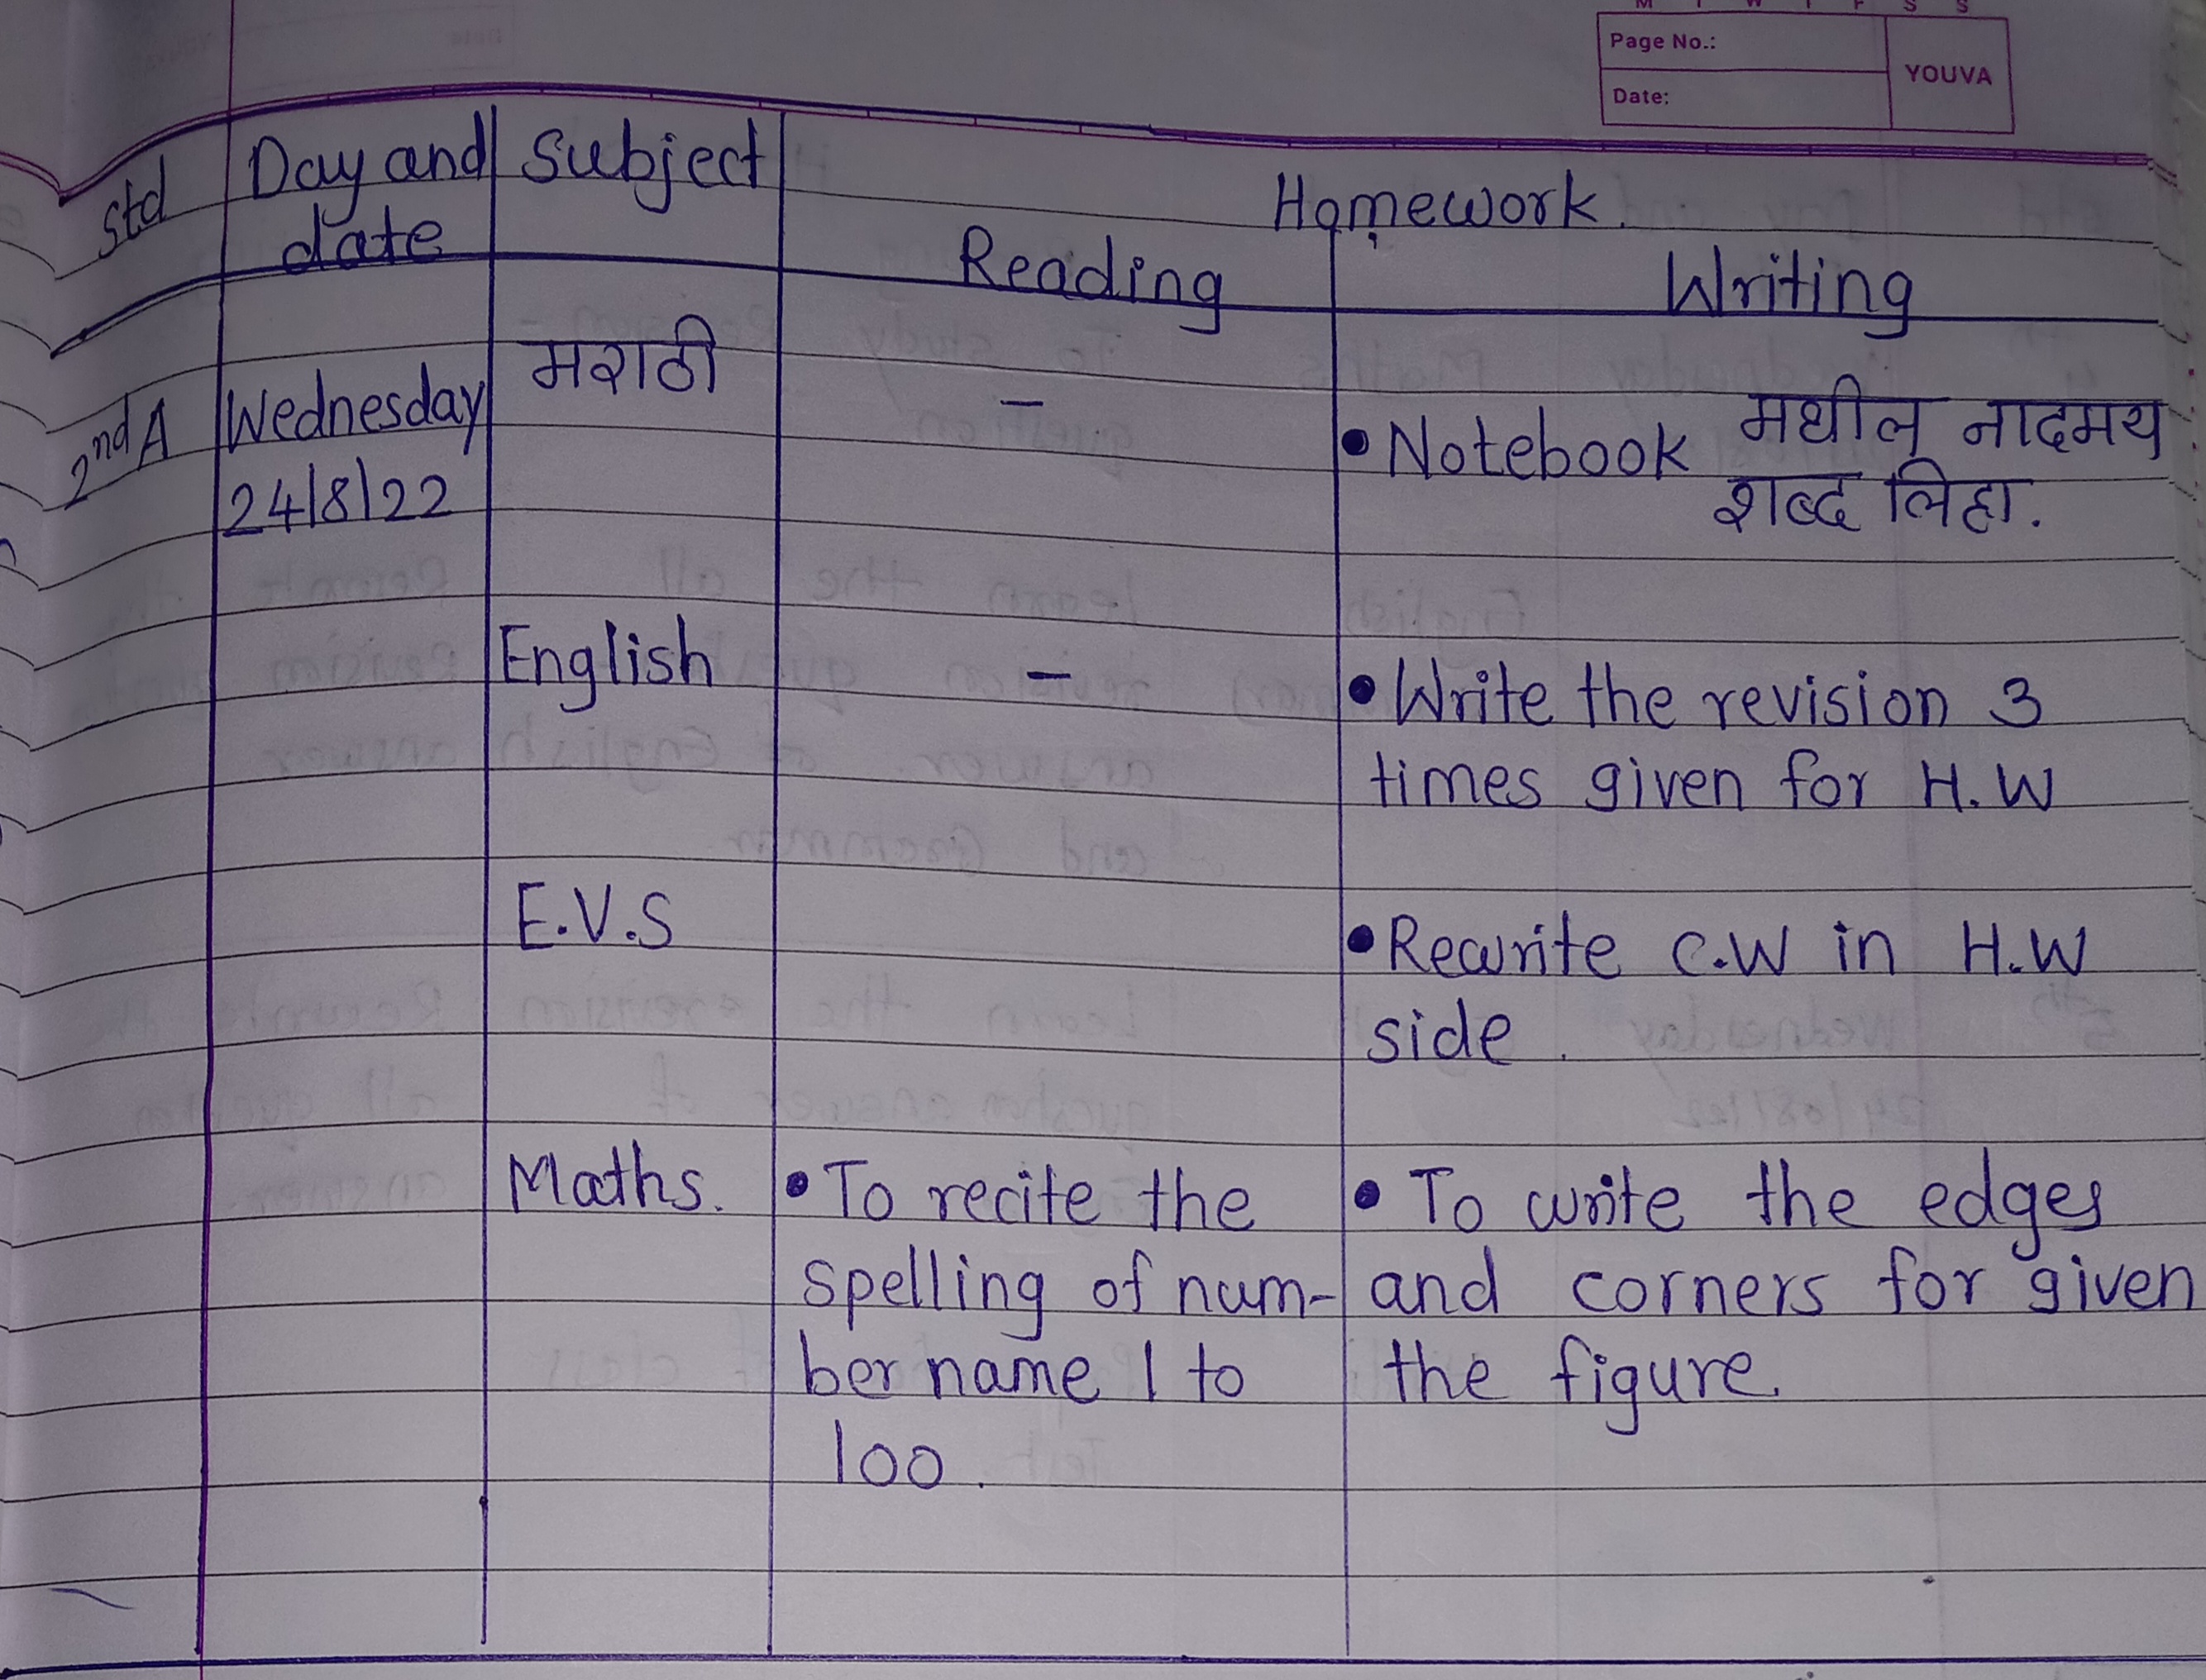 M T W T F S S
Page No.:
YOUVA
Date:
std
Day and
date
Subject
Homework.
Reading
Writing
2nd A
Wednesday
24/8/22
मराठी
-
• Notebook मधील नादमय
शब्द लिहा.
English
-
• Write the revision 3
times given for H.W
E.V.S
• Rewrite C.W in H.W
side.
Maths.
• To recite the
spelling of num-
ber name 1 to
100.
• To write the edges
and corners for given
the figure.